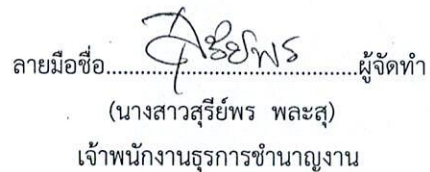 ลายมือชื่อ.....สุรีย์พร.....ผู้จัดทำ
(นางสาวสุรีย์พร พละสุ)
เจ้าพนักงานธุรการชำนาญงาน